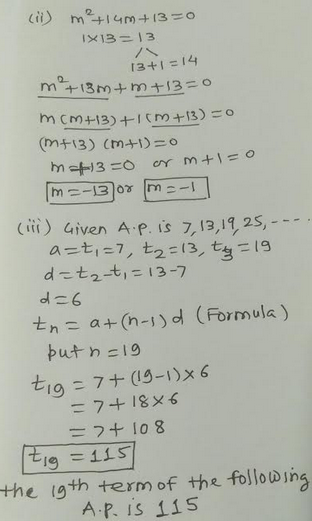 (ii) m²+14m+13=0
1×13=13
13+1=14
m²+13m+m+13=0
m(m+13)+1(m+13)=0
(m+13) (m+1)=0
m+13=0 or m+1=0
m=-13 or m=-1
(iii) Given A.P. is 7,13,19,25,----
a=t₁=7, t₂=13, t₃=19
d=t₂-t₁=13-7
d=6
tn=a+(n-1)d (Formula)
put n=19
t₁₉=7+(19-1)×6
=7+18×6
=7+108
t₁₉=115
the 19th term of the following
A.P. is 115